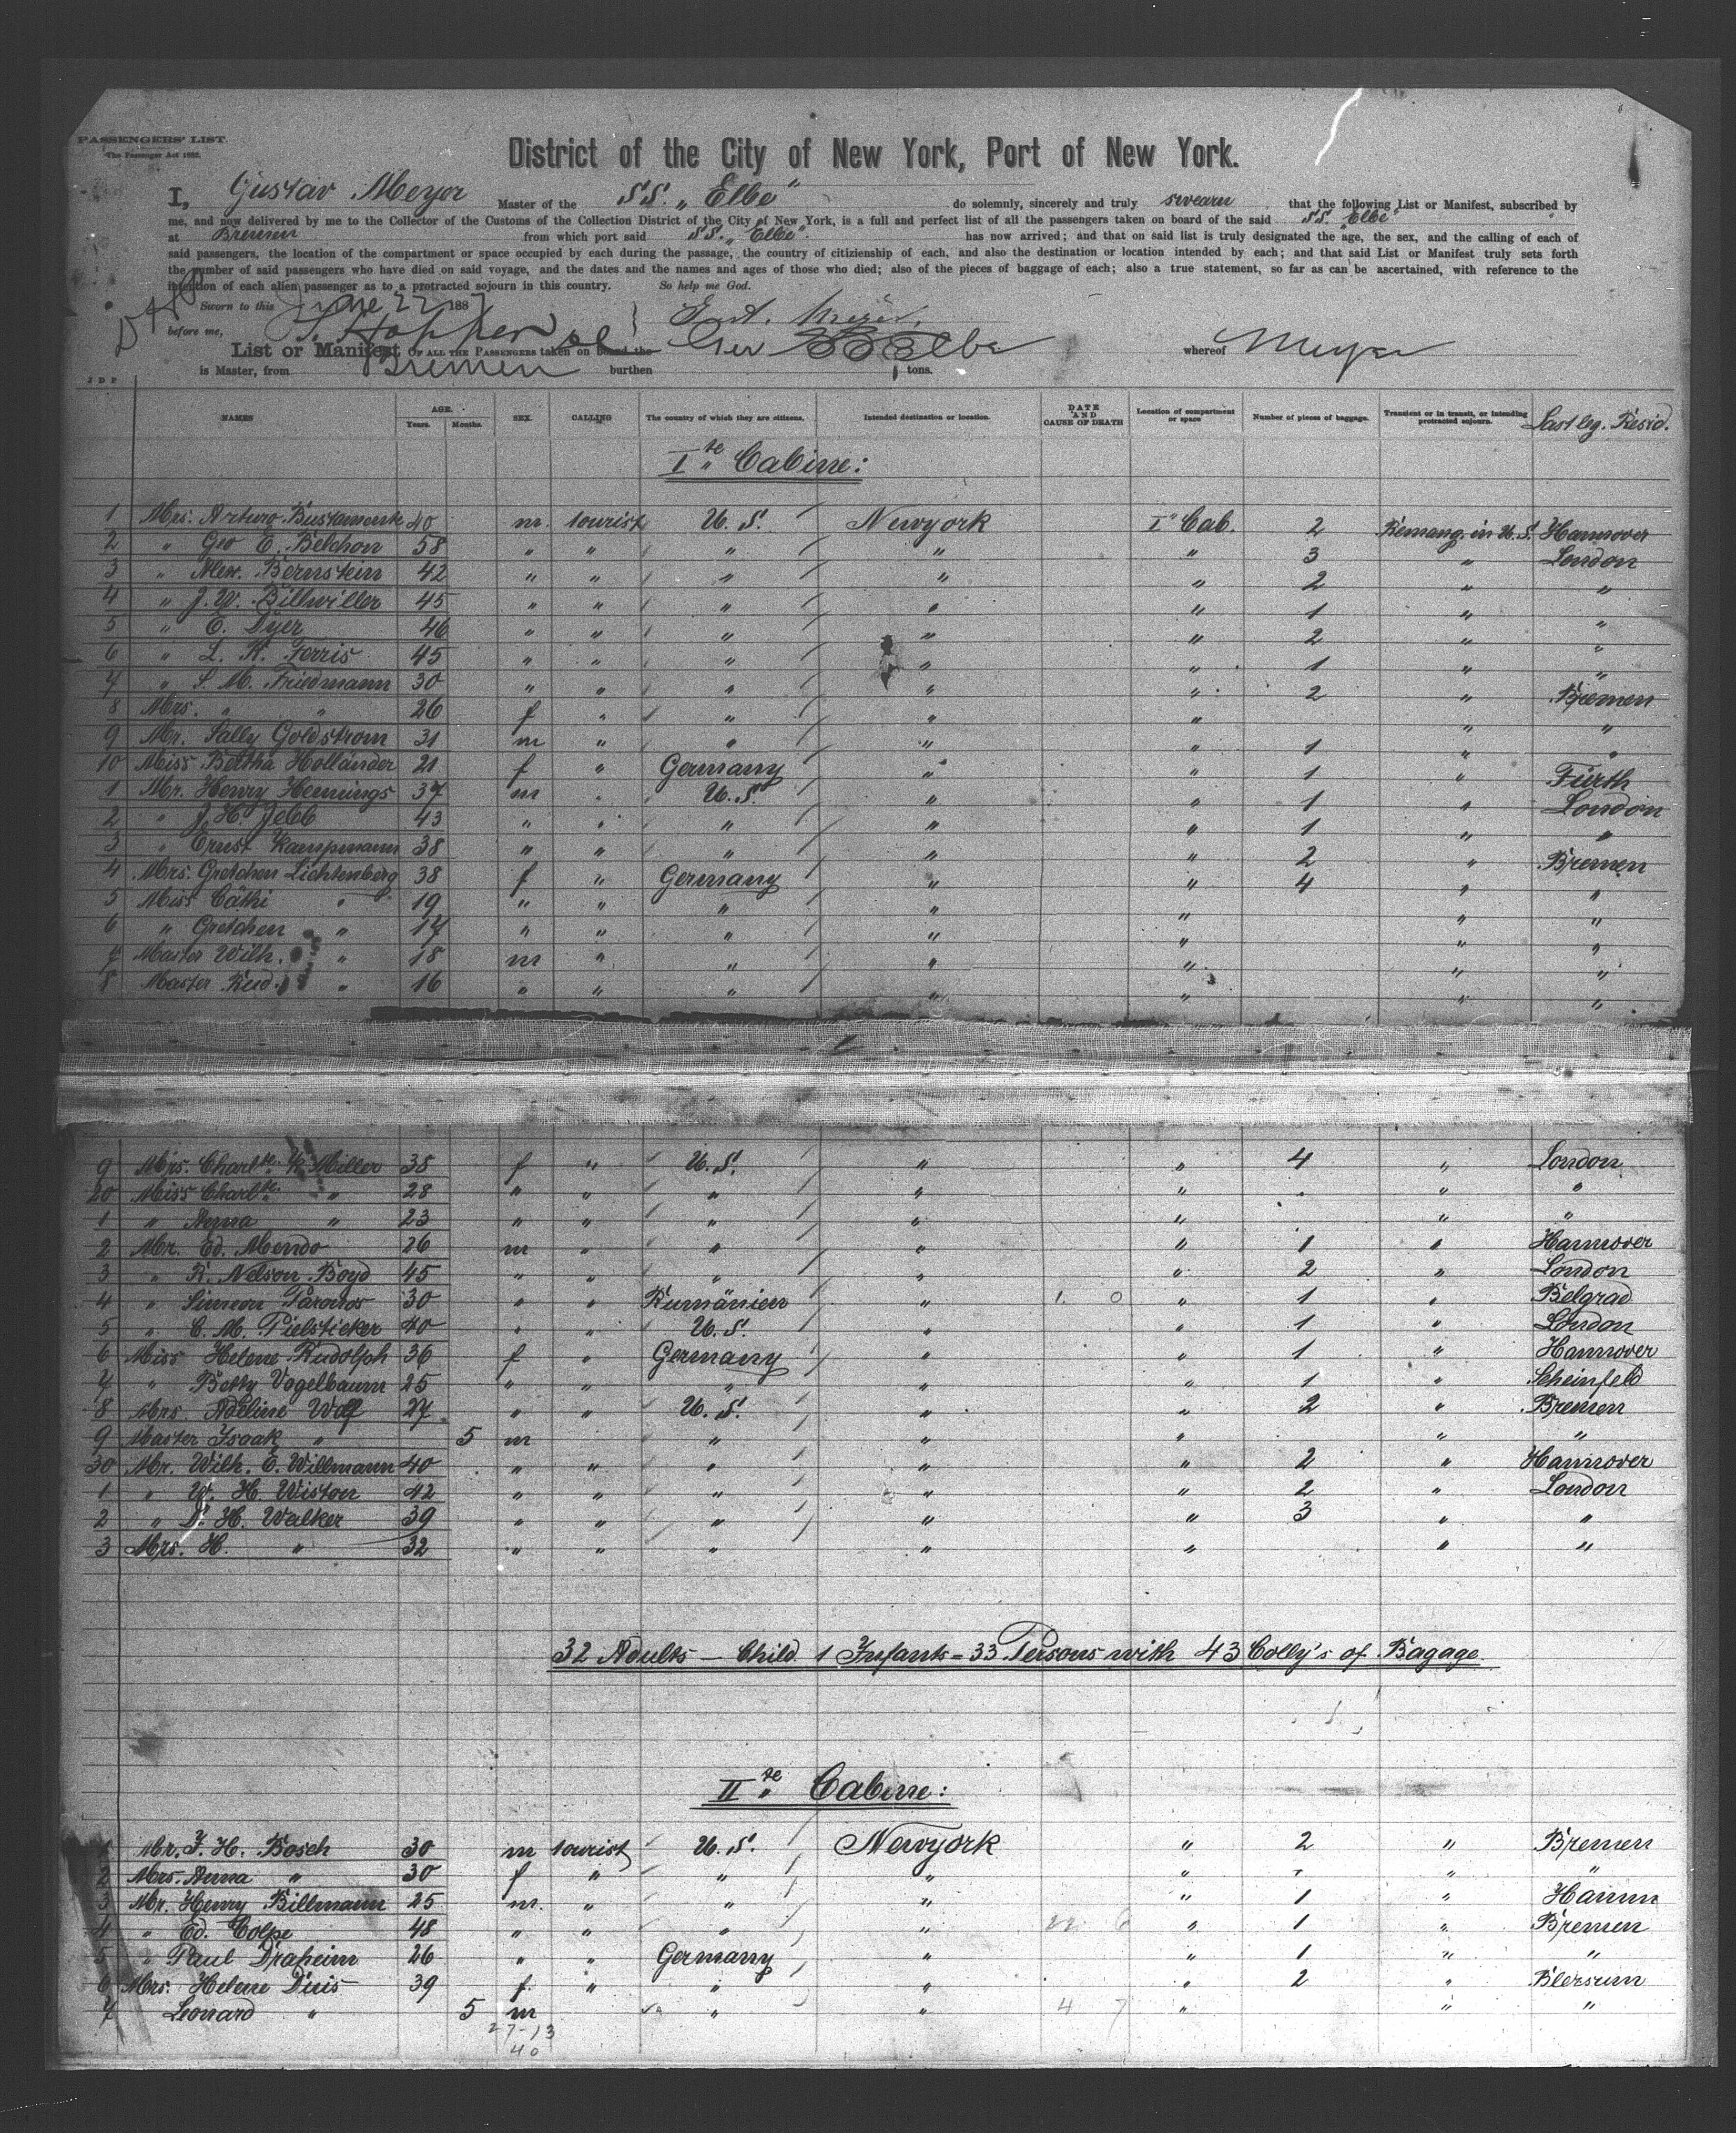 PASSENGERS' LIST.
The Passenger Act 1882.
District of the City of New York, Port of New York.
I, Gustav Meyer Master of the SS. „Elbe" do solemnly, sincerely and truly swearn that the following List or Manifest, subscribed by
me, and now delivered by me to the Collector of the Customs of the Collection District of the City of New York, is a full and perfect list of all the passengers taken on board of the said SS. Elbe"
at Bremen from which port said SS. „Elbe". has now arrived; and that on said list is truly designated the age, the sex, and the calling of each of
said passengers, the location of the compartment or space occupied by each during the passage, the country of citizienship of each, and also the destination or location intended by each; and that said List or Manifest truly sets forth
the number of said passengers who have died on said voyage, and the dates and the names and ages of those who died; also of the pieces of baggage of each; also a true statement, so far as can be ascertained, with reference to the
intention of each alien passenger as to a protracted sojourn in this country. So help me God.
Sworn to this June 22 1887
before me,
List or Manifest OF ALL THE PASSENGERS taken on board the Ger SS Elbe whereof Meyer
is Master, from Bremen burthen tons.
J D P
NAMES AGE. Years. Months. SEX. CALLING The country of which they are citizens. Intended destination or location. DATE AND CAUSE OF DEATH Location of compartment or space Number of pieces of baggage. Transient or in transit, or intending protracted sojourn. Last leg. Resid.
I te Cabine:
1 Mrs. Arturo Bustamente 40 m. tourist U. S. Newyork I" Cab. 2 Remang. in U. S. Hannover
2 " Geo E. Belchon 58 " " " " " 3 " London
3 " Alex. Bernstein 42 " " " " " 2 " "
4 " J. W. Billwiller 45 " " " " " 1 " "
5 " E. Dyer 46 " " " " " 2 " "
6 " L. R. Ferris 45 " " " " " 1 " "
7 " S. M. Friedmann 30 " " " " " 2 " Bremen
8 Mrs. " " 26 f " " " " " "
9 Mr. Sally Goldstrom 31 m " " " " 1 " "
10 Miss Bertha Holländer 21 f " Germany " " 1 " Fürth
1 Mr. Henry Hennings 37 m " U. S. " " 1 " London
2 " J. H. Jebb 43 " " " " " 1 " "
3 " Ernst Kampmann 38 " " " " " 2 " Bremen
4 Mrs. Gretchen Lichtenberg 38 f " Germany " " 4 " "
5 Miss Cäthi " 19 " " " " " " "
6 " Gretchen " 17 " " " " " " "
7 Master Wilh. " 18 m " " " " " "
8 Master Rud. " 16 " " " " " " "
9 Mrs. Charl te. K. Miller 38 f " U. S. " " 4 " London
20 Miss Charl te. " 28 " " " " " " "
1 " Anna " 23 " " " " " " "
2 Mr. Ed. Mendo 26 m " " " " 1 " Hannover
3 " R. Nelson Boyd 45 " " " " " 2 " London
4 " Simeon Parodos 30 " " Rumänien " " 1 " Belgrad
5 " C. M. Pielsticker 40 " " U. S. " " 1 " London
6 Miss Helene Rudolph 36 f " Germany " " 1 " Hannover
7 " Betty Vogelbaum 25 " " " " " 1 " Scheinfeld
8 Mrs. Adeline Wolf 27 " " U. S. " " 2 " Bremen
9 Master Isaak " 5 m " " " " "
30 Mr. Wilh. E. Willmann 40 " " " " " 2 " Hannover
1 " W. H. Wiston 42 " " " " " 2 " London
2 " Dr. H. Walker 39 " " " " " 3 " "
3 Mrs. H. " 32 " " " " " " "
32 Adults — Child 1 Infants = 33 Persons with 43 Colly's of Bagage.
II te Cabine:
1 Mr. F. H. Bosch 30 m tourist U. S. Newyork " 2 " Bremen
2 Mrs. Anna " 30 f " " " " " "
3 Mr. Henry Billmann 25 m. " " " " 1 " Hamm
4 " Ed. Colpe 48 " " " " " 1 " Bremen
5 " Paul Draheim 26 " " Germany " " 1 " "
6 Mrs. Helene Diris 39 f. " " " " 2 " Blersum
7 Leonard " 5 m " " " " "
27-13
40